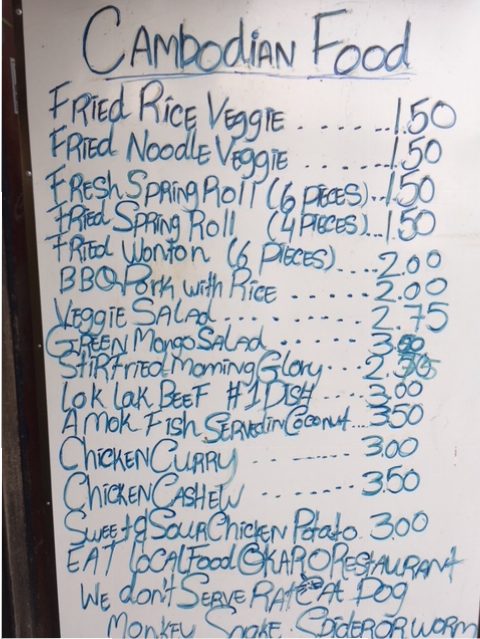 CAMBODIAN FOOD
FRIED RICE VEGGIE ........ 1.50
FRIED NOODLE VEGGIE ...... 1.50
FRESH SPRING ROLL (6 PIECES)..1.50
FRIED SPRING ROLL (4 PIECES)...1.50
FRIED WONTON (6 PIECES)....2.00
BBQ PORK WITH RICE ....... 2.00
VEGGIE SALAD........... 2.75
GREEN MANGO SALAD ....... 3.00
STIR FRIED MORNING GLORY....
LOK LAK BEEF #1 DISH .... 3.00
AMOK FISH SERVED IN COCONUT...3.50
CHICKEN CURRY ........ 3.00
CHICKEN CASHEW ....... 3.50
SWEET & SOUR CHICKEN POTATO. 3.00
EAT LOCAL FOOD @ KARO RESTAURANT
WE DON'T SERVE RAT CAT DOG
MONKEY SNAKE SPIDER OR WORM